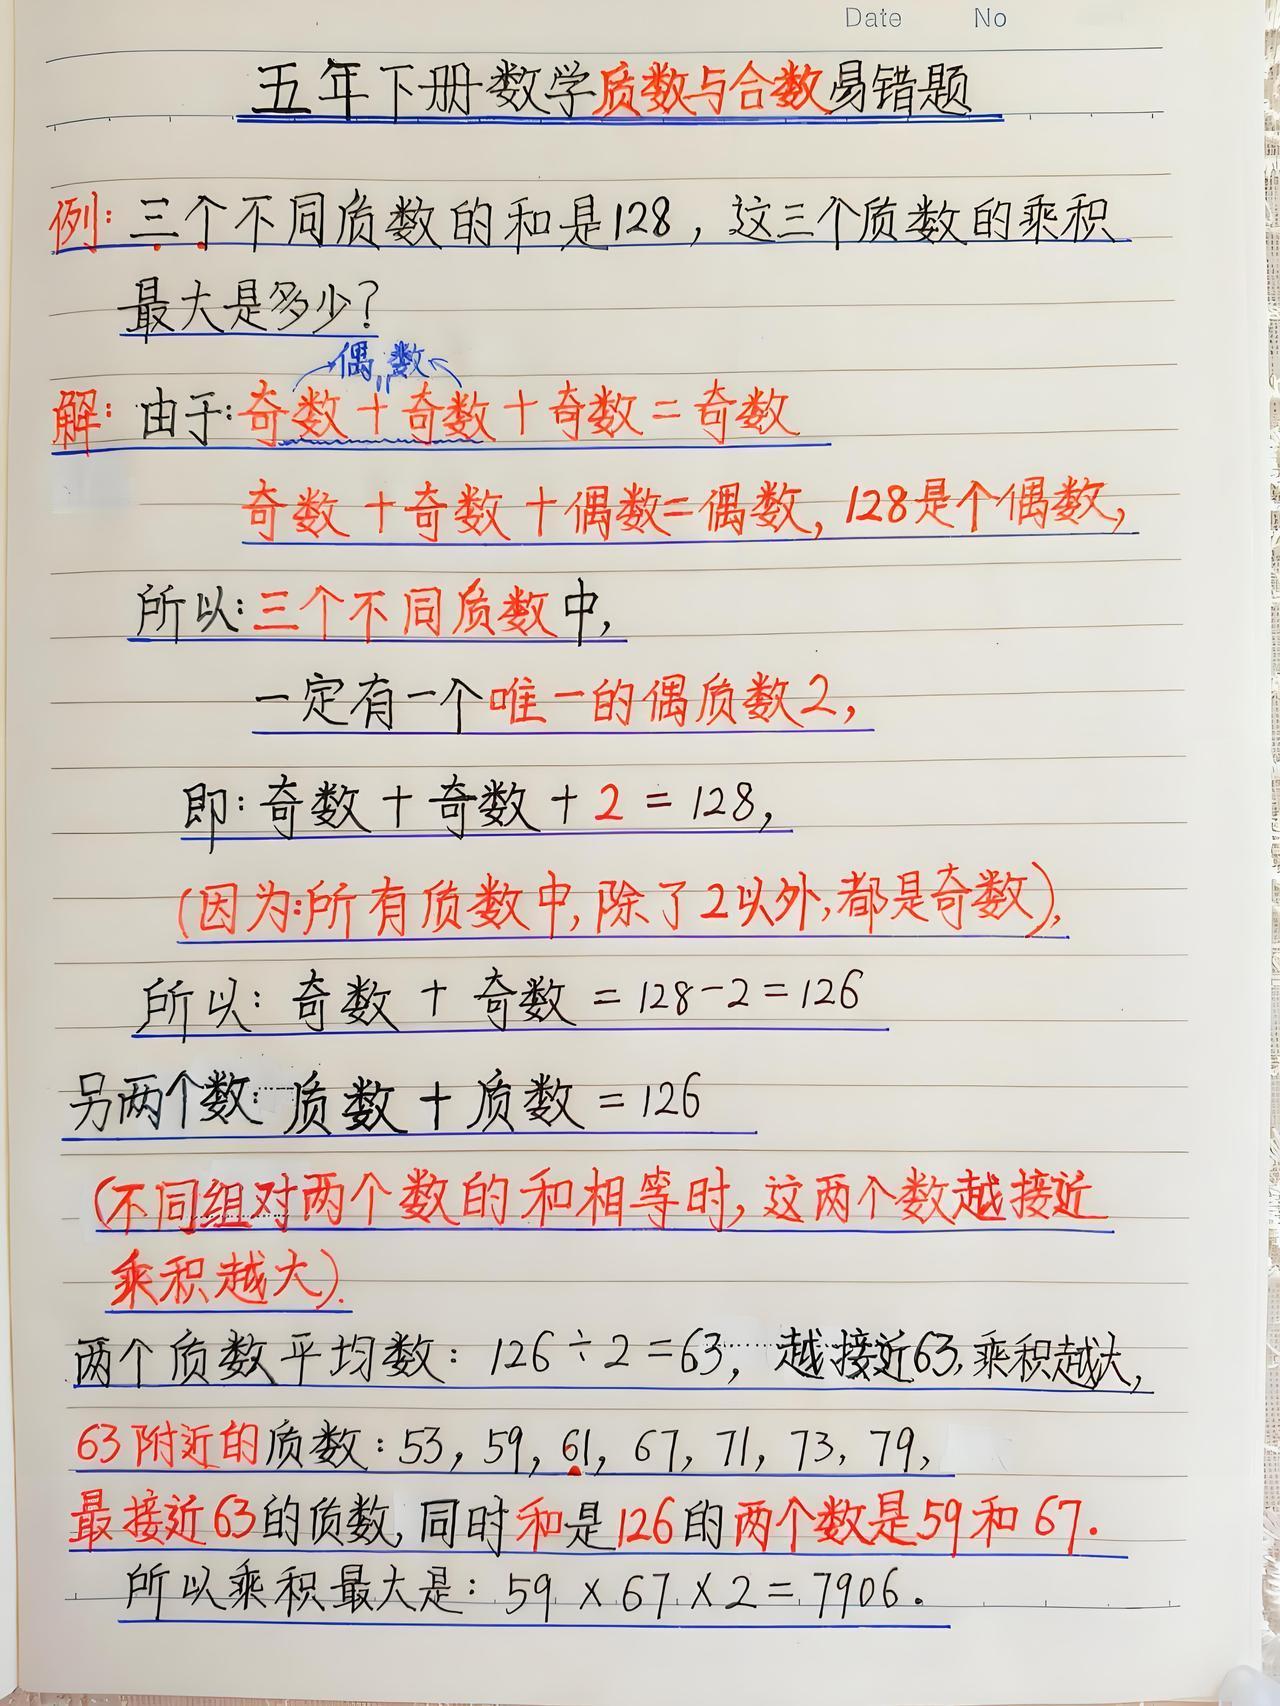 Date No
五年下册数学质数与合数易错题
例：三个不同质数的和是128，这三个质数的乘积
最大是多少？
偶数
解：由于：奇数＋奇数＋奇数＝奇数
奇数＋奇数＋偶数＝偶数，128是个偶数，
所以：三个不同质数中，
一定有一个唯一的偶质数2，
即：奇数＋奇数＋2＝128，
（因为：所有质数中，除了2以外，都是奇数），
所以：奇数＋奇数＝128－2＝126
另两个数：质数＋质数＝126
（不同组对两个数的和相等时，这两个数越接近
乘积越大）．
两个质数平均数：126÷2＝63，越接近63，乘积越大，
63附近的质数：53，59，61，67，71，73，79，
最接近63的质数，同时和是126的两个数是59和67．
所以乘积最大是：59×67×2＝7906．